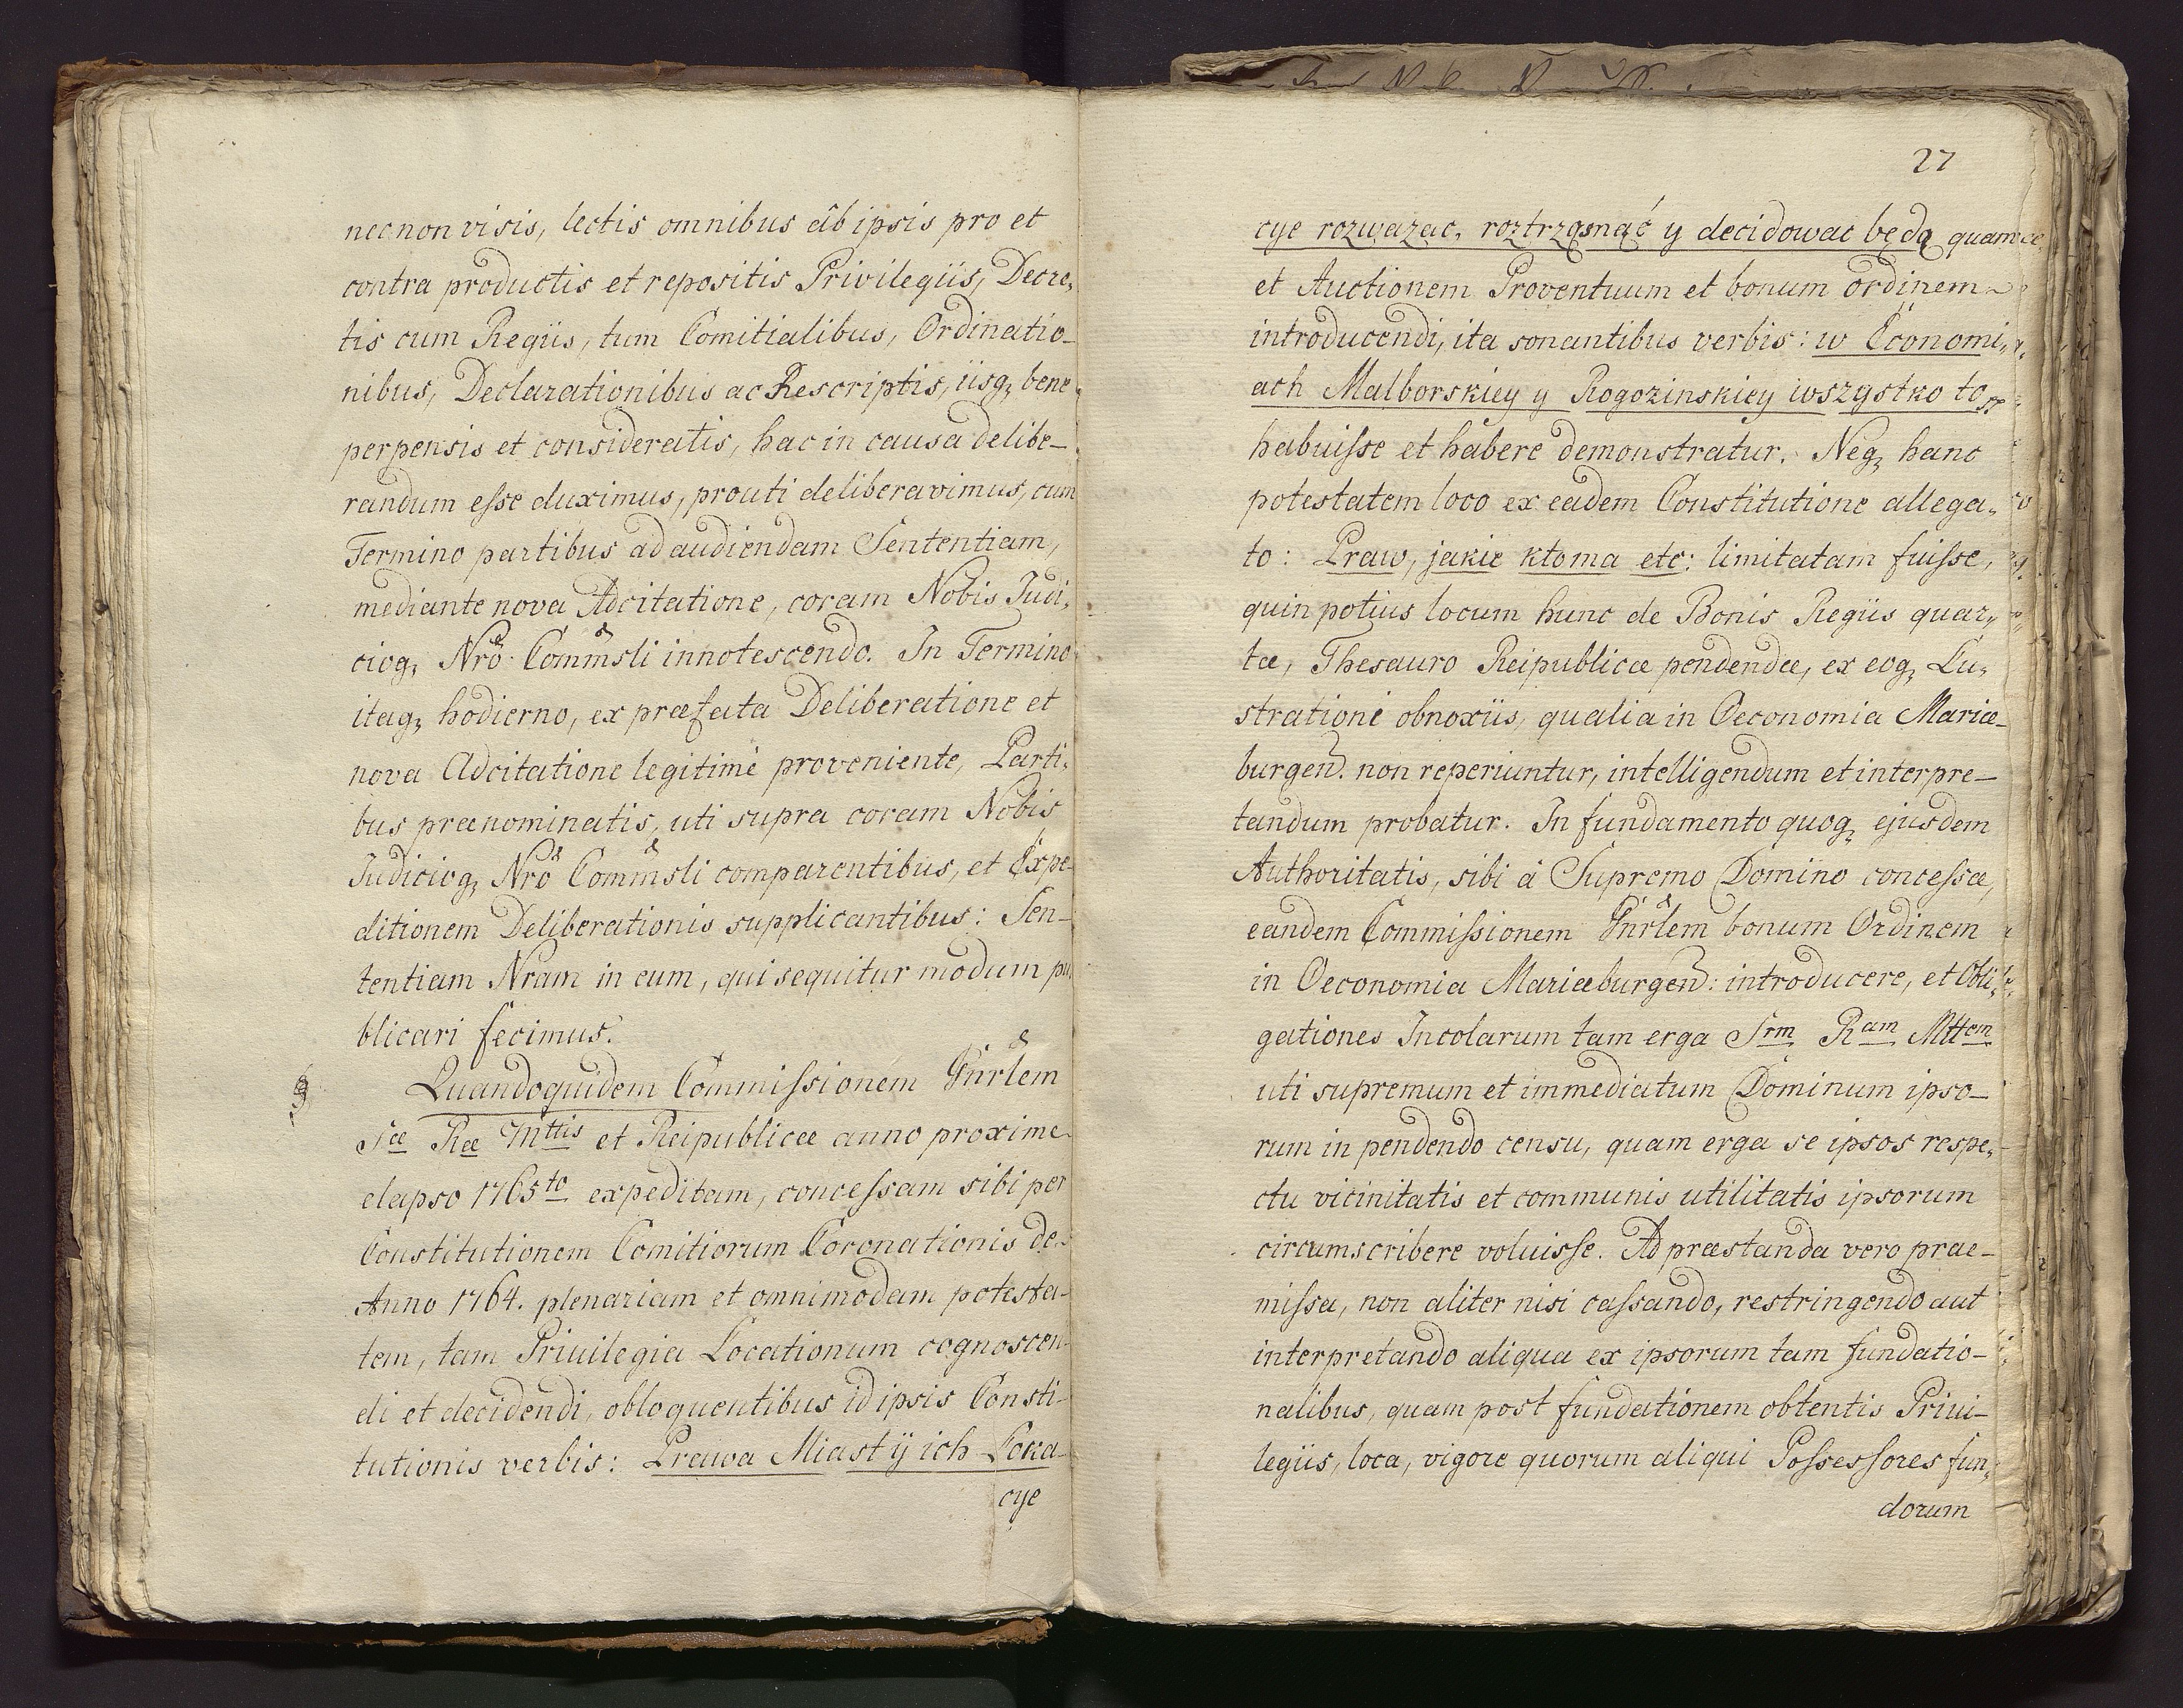 necnon visis, lectis omnibus ab ipsis pro et
contra productis et repositis Privilegiis, Decre„
tis cum Regiis, tum Comitialibus, Ordinatio_
nibus, Declarationibus ac Rescriptis, iisq, bene
perpensis et consideratis, hac in causa delibe_
randum esse duximus, prouti deliberavimus, cum
Termino partibus ad audiendam Sententiam,
mediante nova Adcitatione, coram Nobis Judi„
cioq, Nrô Commsli innotescendo. In Termino
itaq, hodierno, ex præfata Deliberatione et
nova Adcitatione legitimè proveniente, Parti„
bus prænominatis, uti supra coram Nobis
Judicioq, Nrô Commsli comparentibus, et Expe_
ditionem Deliberationis supplicantibus: Sen_
tentiam Nram in eum, qui sequitur modum pu„
blicari fecimus.
§ Quandoquidem Commissionem Gnrlem
Sæ Ræ Mttis et Reipublicæ anno proxime
elapso 1765to expeditam, concessam sibi per
Constitutionem Comitiorum Coronationis de
Anno 1764. plenariam et omnimodam potesta_
tem, tam Priuilegia Locationum cognoscen_
di et decidendi, obloquentibus id ipsis Consti_
tutionis verbis: Prawa Miast ÿ ich Loka_
cye
27
cye rozwazac, roztrząsnąć y decidowac będą quam
et Auctionem Proventuum et bonum ordinem
introducendi, ita sonantibus verbis: w Économi„
ach Malborskiey y Rogozinskiey wszystko to
habuisse et habere demonstratur. Neq, hanc
potestatem loco ex eadem Constitutione allega„
to: Praw, jakie kto ma etc: limitatam fuisse,
quin potius locum hunc de Bonis Regiis quar„
tæ, Thesauro Reipublicæ pendendæ, ex eoq, Lu„
strationi obnoxiis, qualia in Oeconomia Mariæ_
burgen. non reperiuntur, intelligendum et interpre_
tandum probatur. In fundamento quoq, ejusdem
Authoritatis, sibi à Supremo Domino concessæ,
eandem Commissionem Gnrlem bonum Ordinem
in Oeconomia Mariæburgen: introducere, et Obli„
gationes Incolarum tam erga Srm Ram Mttem
uti supremum et immediatum Dominum ipso_
rum in pendendo censu, quam erga se ipsos respe„
ctu vicinitatis et communis utilitatis ipsorum
circumscribere voluisse. Ad præstanda vero præ_
missa, non aliter nisi cassando, restringendo aut
interpretando aliqua ex ipsorum tam fundatio_
nalibus, quam post fundationem obtentis Priui_
legiis, loca, vigore quorum aliqui Possessores fun„
dorum